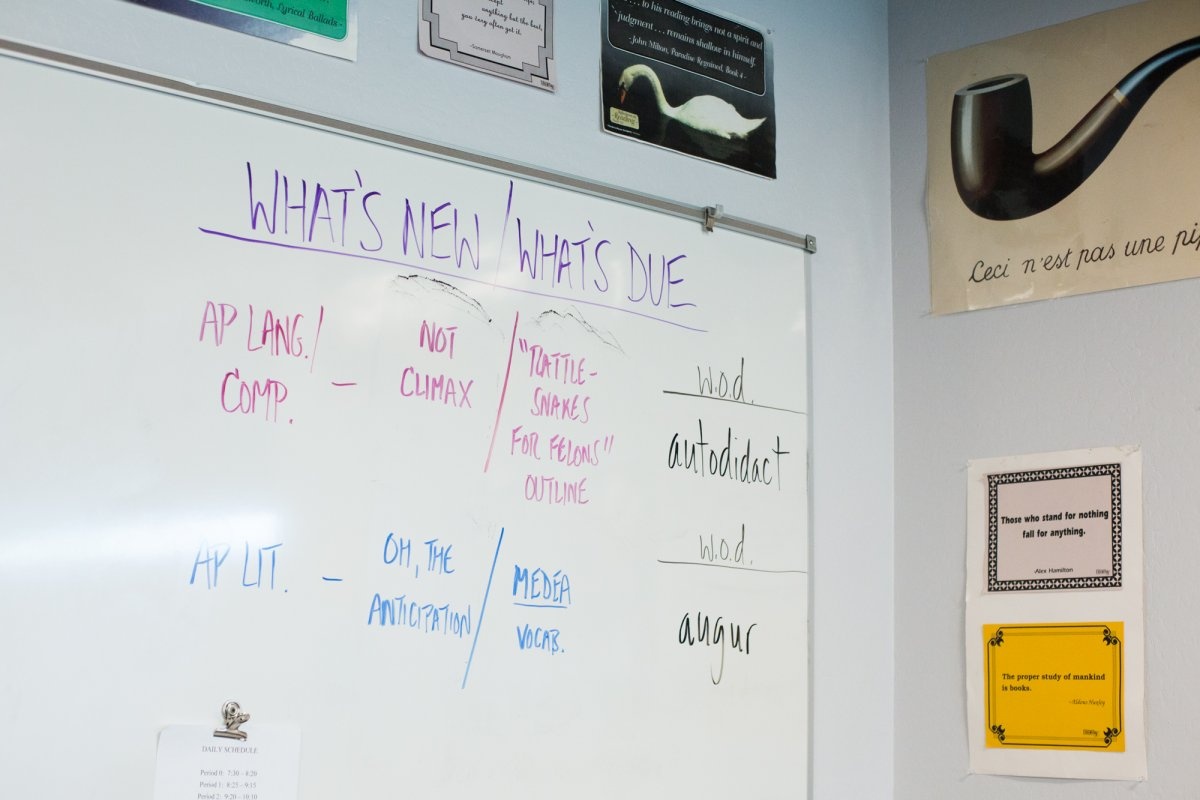 worth, Lyrical Ballads-
anything but the best,
you very often get it.
-Somerset Maugham
... to his reading brings not a spirit and
judgment ... remains shallow in himself.
-John Milton, Paradise Regained, Book 4-
Reading
Ceci n'est pas une pip
WHAT'S NEW / WHAT'S DUE
AP LANG./
COMP. –
NOT
CLIMAX /
"RATTLE-
SNAKES
FOR FELONS"
OUTLINE
w.o.d.
autodidact
AP LIT. –
OH, THE
ANTICIPATION /
MEDEA
VOCAB.
w.o.d.
augur
DAILY SCHEDULE
Period 0: 7:30 – 8:20
Period 1: 8:25 – 9:15
Period 2: 9:20 – 10:10
Those who stand for nothing
fall for anything.
-Alex Hamilton
The proper study of mankind
is books.
-Aldous Huxley